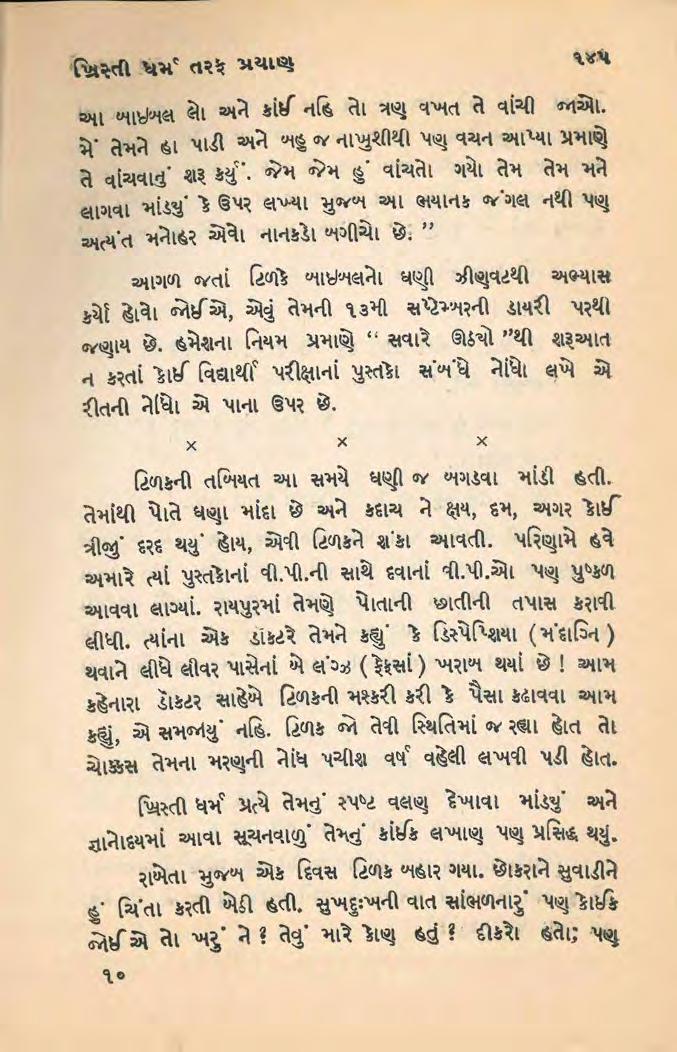 ખ્રિસ્તી ધર્મ તરફ પ્રયાણ ૧૪૫
આ બાઇબલ લો અને કાંઈ નહિ તો ત્રણ વખત તે વાંચી જાઓ.
મેં તેમને હા પાડી અને બહુ જ નાખુશીથી પણ વચન આપ્યા પ્રમાણે
તે વાંચવાનું શરૂ કર્યું. જેમ જેમ હું વાંચતો ગયો તેમ તેમ મને
લાગવા માંડયું કે ઉપર લખ્યા મુજબ આ ભયાનક જંગલ નથી પણ
અત્યંત મનોહર એવો નાનકડો બગીચો છે. ”
આગળ જતાં ટિળકે બાઇબલનો ઘણી ઝીણવટથી અભ્યાસ
કર્યો હોવો જોઈએ, એવું તેમની ૧૩મી સપ્ટેમ્બરની ડાયરી પરથી
જણાય છે. હમેશના નિયમ પ્રમાણે “ સવારે ઊઠયો ”થી શરૂઆત
ન કરતાં કોઈ વિદ્યાર્થી પરીક્ષાનાં પુસ્તકો સંબંધે નોંધો લખે એ
રીતની નોંધો એ પાના ઉપર છે.
× × ×
ટિળકની તબિયત આ સમયે ઘણી જ બગડવા માંડી હતી.
તેમાંથી પોતે ઘણા માંદા છે અને કદાચ ને ક્ષય, દમ, અગર કોઈ
ત્રીજું દરદ થયું હોય, એવી ટિળકને શંકા આવતી. પરિણામે હવે
અમારે ત્યાં પુસ્તકોનાં વી.પી.ની સાથે દવાનાં વી.પી.ઓ પણ પુષ્કળ
આવવા લાગ્યાં. રાયપુરમાં તેમણે પોતાની છાતીની તપાસ કરાવી
લીધી. ત્યાંના એક ડૉક્ટરે તેમને કહ્યું કે ડિસ્પેપ્શિયા ( મંદાગ્નિ )
થવાને લીધે લીવર પાસેનાં બે લંગ્ઝ ( ફેફસાં ) ખરાબ થયાં છે ! આમ
કહેનારા ડૉક્ટર સાહેબે ટિળકની મશ્કરી કરી કે પૈસા કઢાવવા આમ
કહ્યું, એ સમજાયું નહિ. ટિળક જો તેવી સ્થિતિમાં જ રહ્યા હોત તો
ચોક્કસ તેમના મરણની નોંધ પચીશ વર્ષ વહેલી લખવી પડી હોત.
ખ્રિસ્તી ધર્મ પ્રત્યે તેમનું સ્પષ્ટ વલણ દેખાવા માંડયું અને
જ્ઞાનોદયમાં આવા સૂચનવાળું તેમનું કાંઈક લખાણ પણ પ્રસિદ્ધ થયું.
રાબેતા મુજબ એક દિવસ ટિળક બહાર ગયા. છોકરાને સુવાડીને
હું ચિંતા કરતી બેઠી હતી. સુખદુઃખની વાત સાંભળનારું પણ કોઈક
જોઈએ તો ખરું ને ? તેવું મારે કોણ હતું ? દીકરો હતો; પણ
૧૦